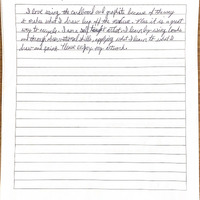 I love using the cardboard and graphite because of the way
it makes what I draw leap off the surface. Plus it is a great
way to recycle. I am a self taught artist. I learn by using books
and through observational skills, applying what I learn to what I
draw and paint. Please enjoy my artwork.